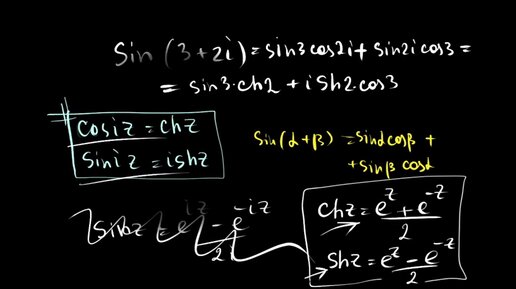 Sin (3+2i) = sin3cos2i + sin2i cos3 =
= sin3·ch2 + i Sh2·cos3
cosiz = chz
siniz = ishz
Sin(α+β) = sinαcosβ +
+ sinβ cosα
chz = (e^z + e^-z)/2
Shz = (e^z - e^-z)/2